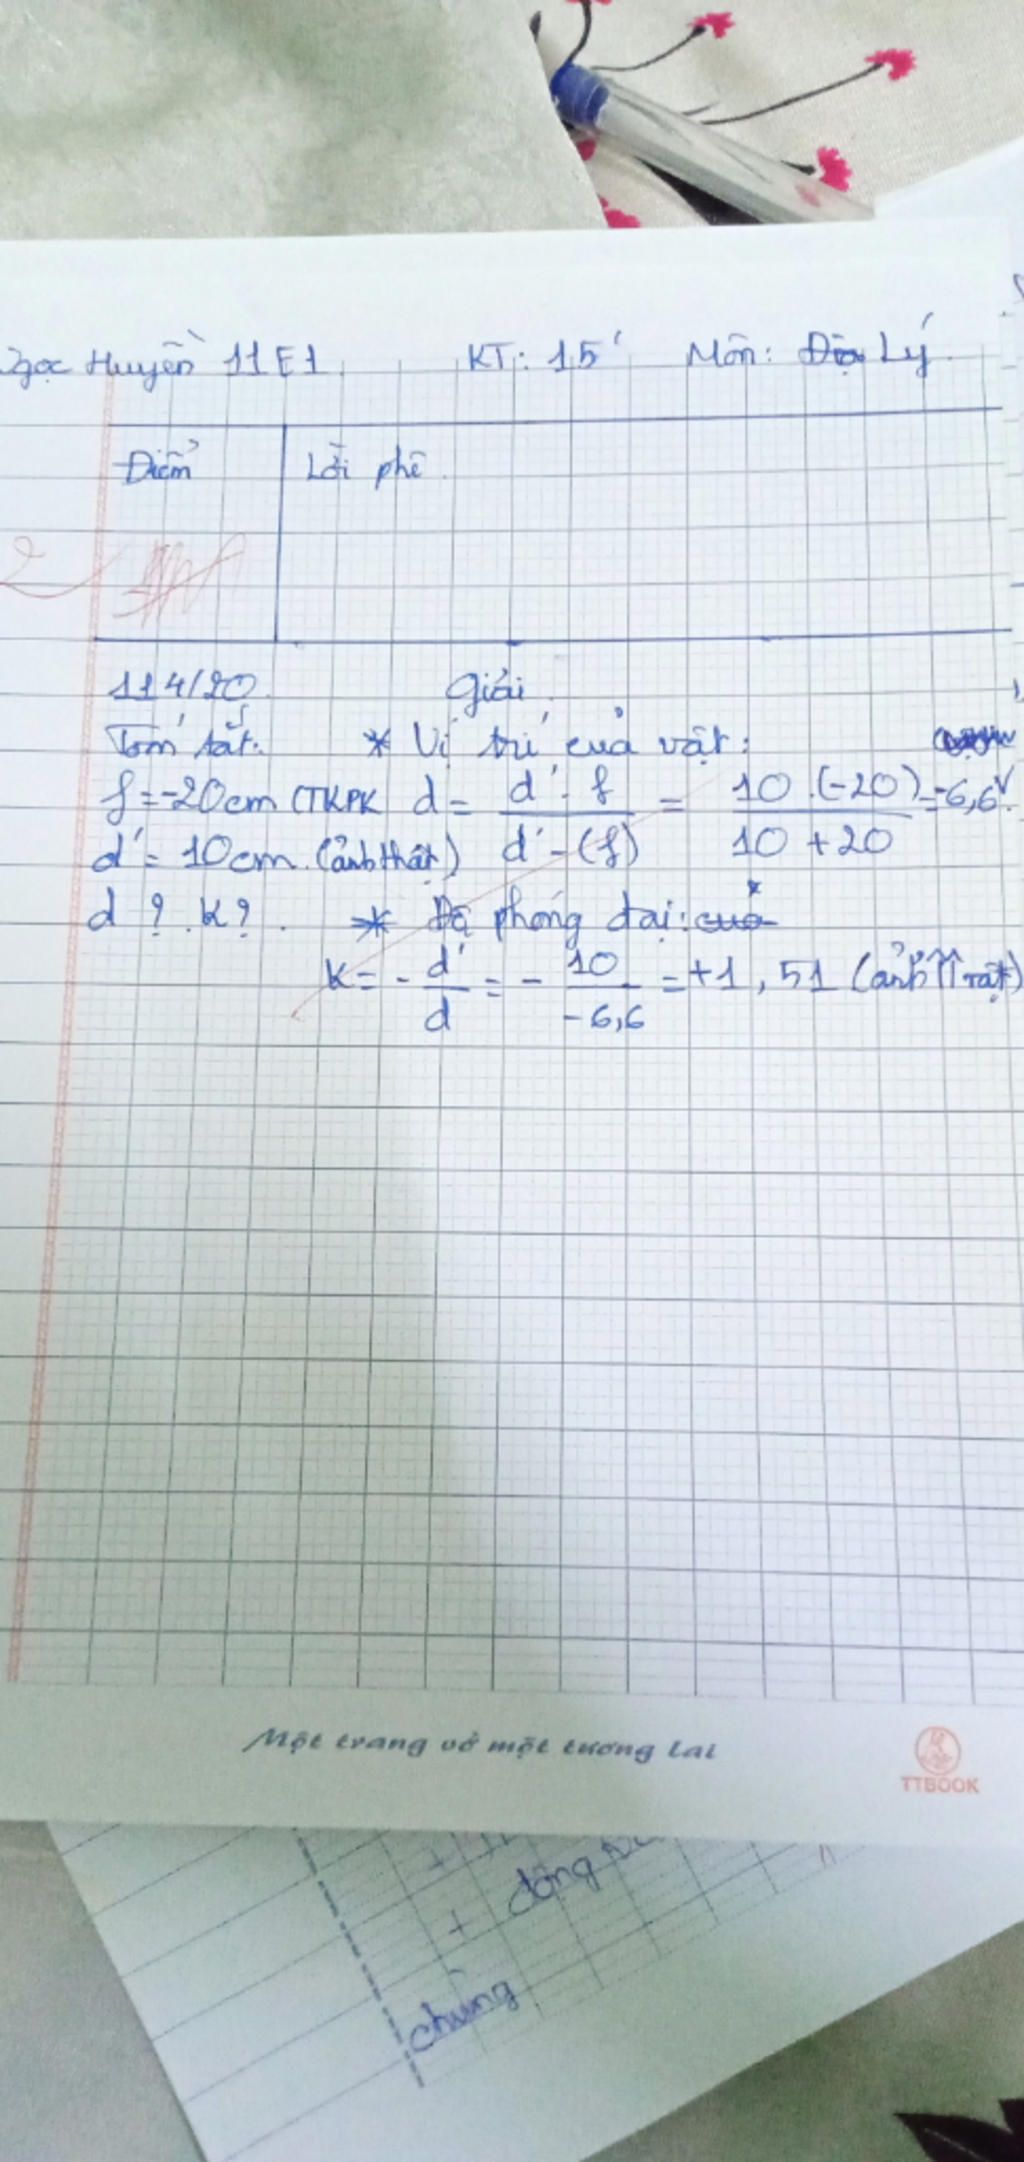 Ngọc Huyền 11E1 KT: 15' Môn: Địa Lý.
Điểm Lời phê.
2
114/20. Giải.
Tóm tắt: * Vị trí của vật:
f = -20cm (TKPK d = d' . f / d' - (f) = 10 . (-20) / 10 + 20 = -6,6
d' = 10cm. (ảnh thật)
d ? . K ? . * Độ phóng đại: của
K = - d' / d = - 10 / -6,6 = +1,51 (ảnh ↑↑ vật)
Một trang vở một tương lai
TTBOOK
+
+ động
chủng